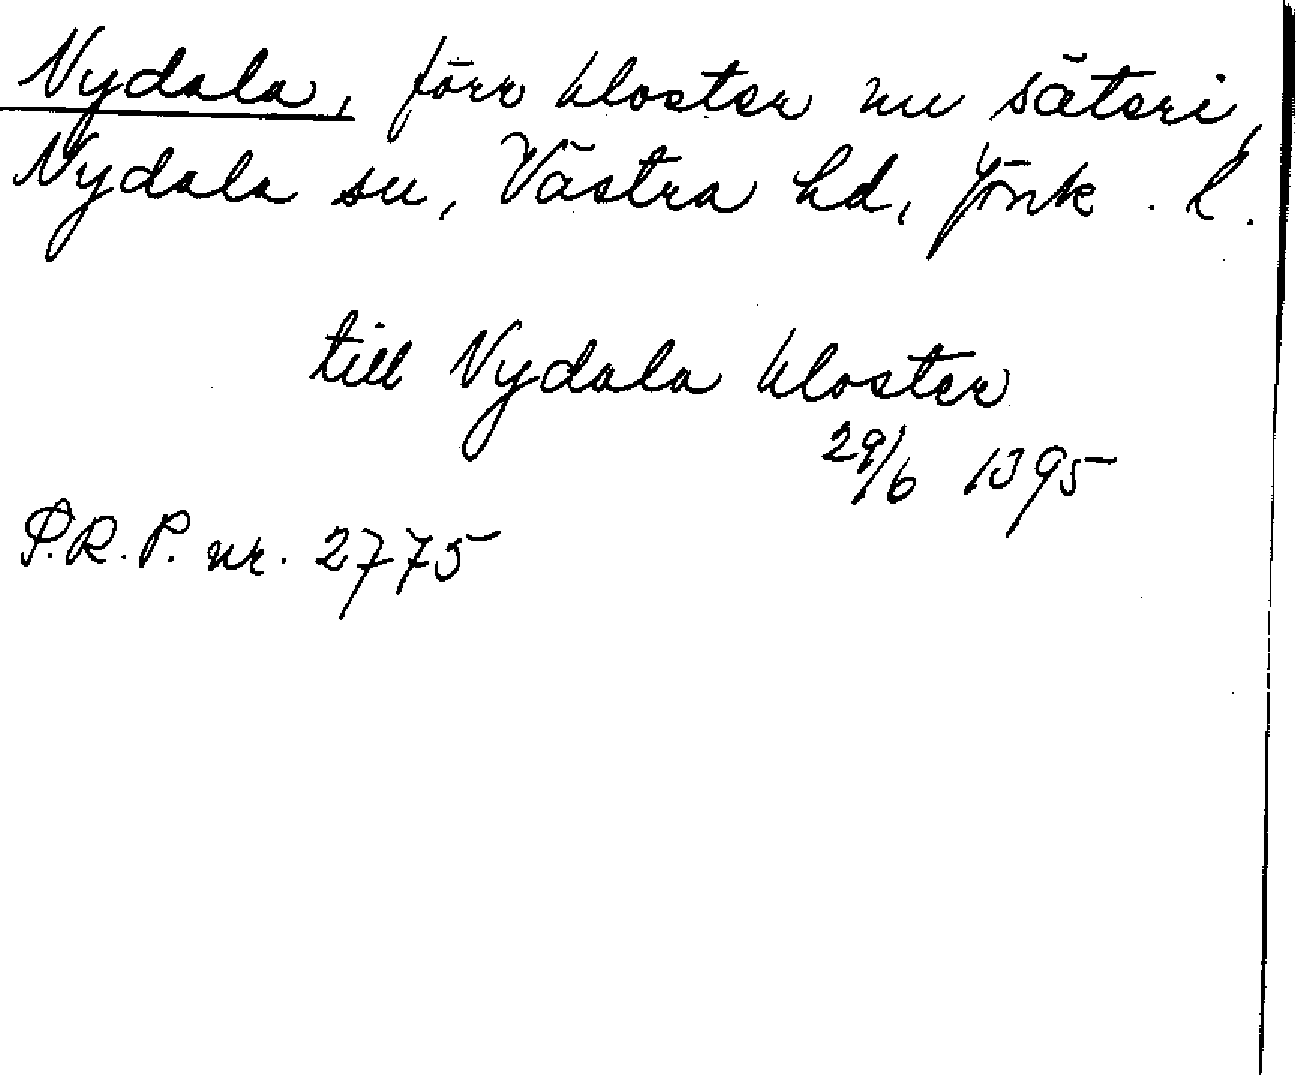 Nydala, förr kloster nu säteri,
Nydala sn, Västra hd, Jönk. l.
till Nydala kloster
29/6 1395
P.R.P. nr. 2775